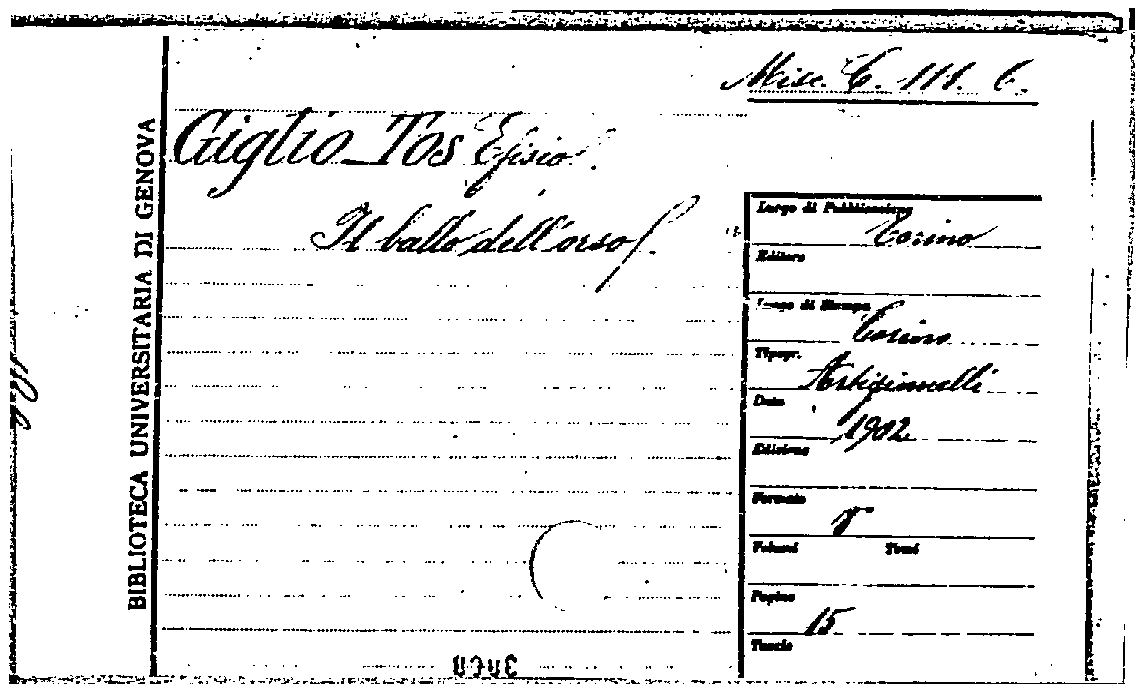 Misc. C. 111. 6.
BIBLIOTECA UNIVERSITARIA DI GENOVA
Giglio-Tos Efisio.
Il ballo dell'orso.
Luogo di Pubblicazione
Torino
Editore
Luogo di Stampa
Torino
Tipogr.
Artigianelli
Data
1902
Edizione
Formato
8°
Volumi Tomi
Pagine
15
Tavole